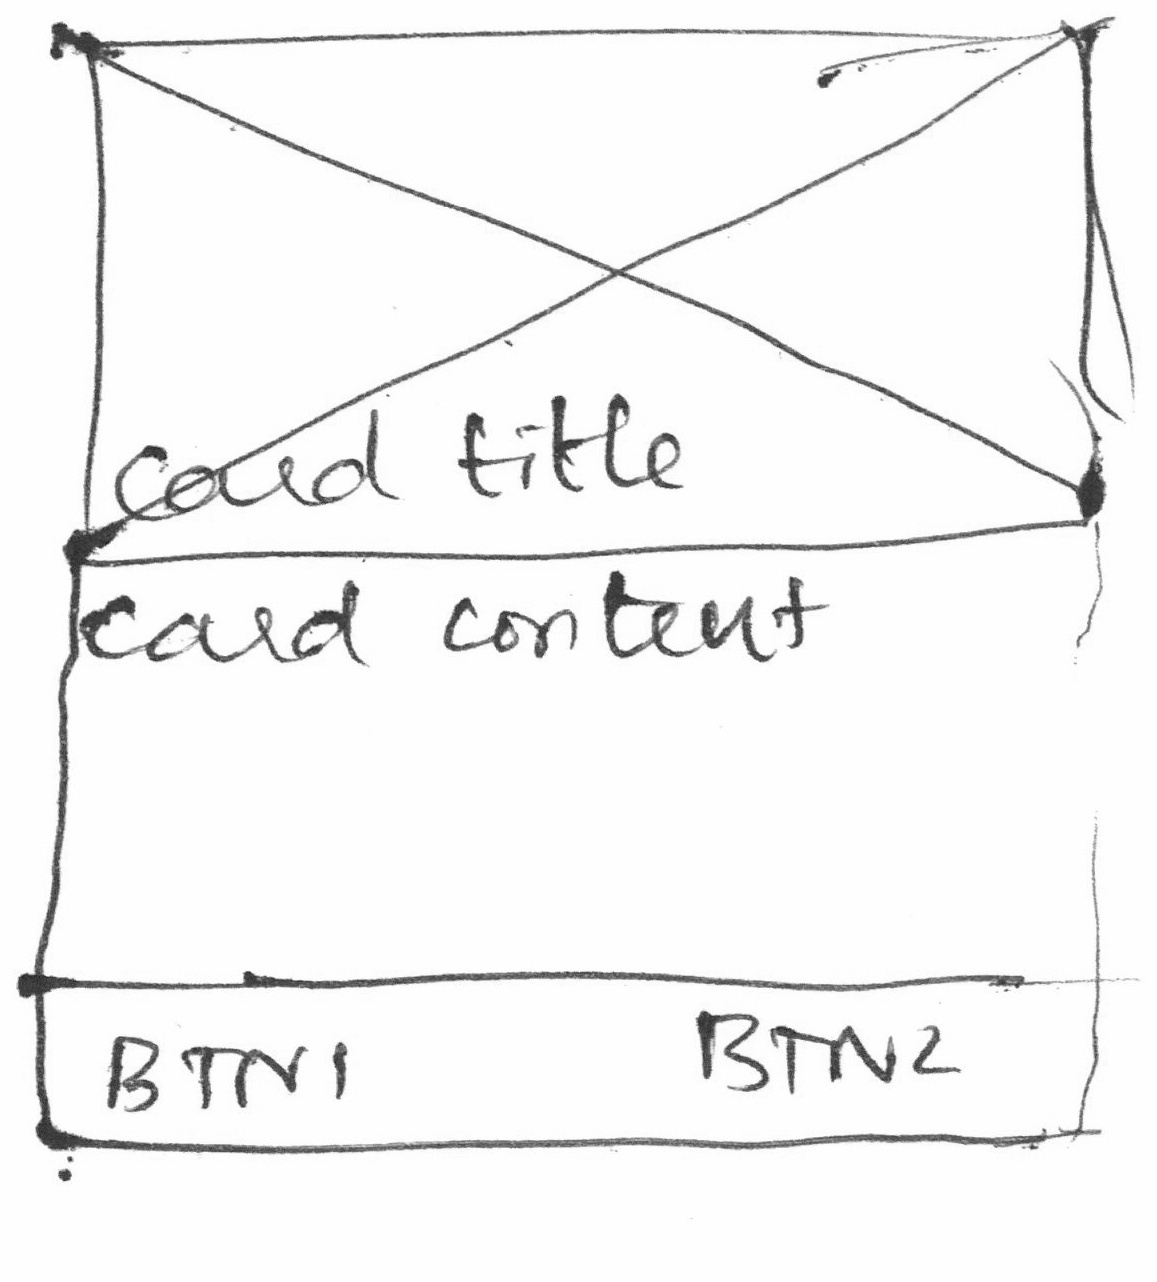 card title
card content
BTN1 BTN2